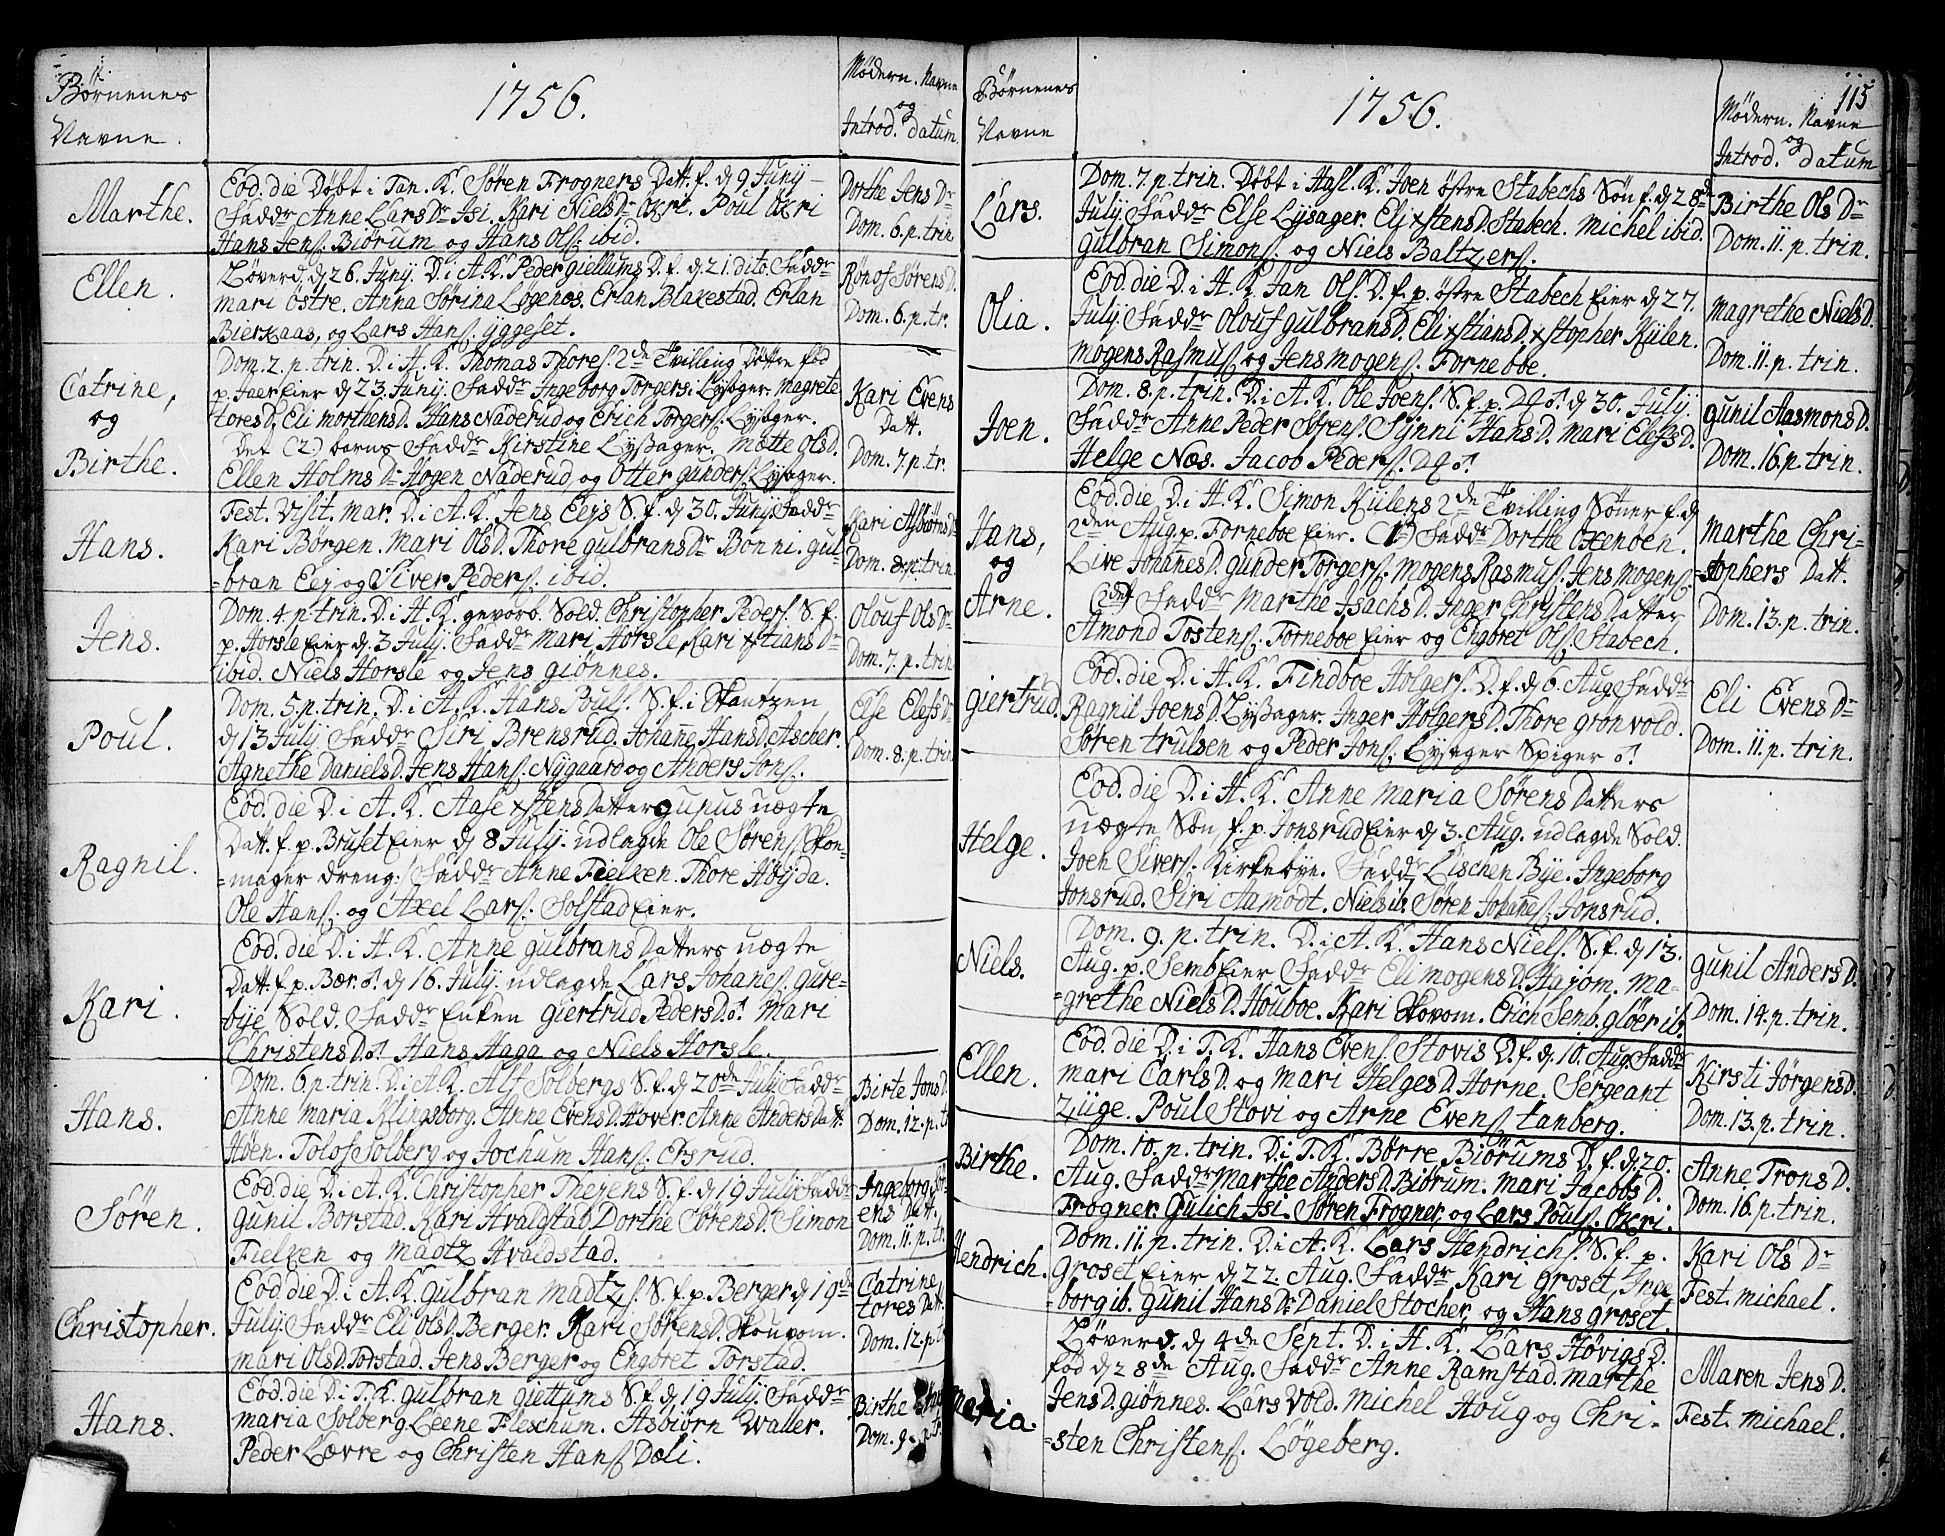 Børnenes
Navne.
1756.
Mødern. Navne
og
Introd. datum.
Marthe.
Eod. die Døbt i Tan. K. Søren Frogners Datt. f. d 9 Junij
Fadd: Anne Lars Dr Isi. Kari Niels Dr Økri. Poul Økri
Hans Jens. Biørum og Hans Ols. ibid.
Dorthe Jens Dr
Dom. 6. p. trin
Ellen.
Løverd. d 26. Junij. D. i A. K. Peder giellums D. f. d. 21. dito. Fadd:
mari østre. Anna Sørina Løgenes. Erlan Blakestad. Erlan
Bierkaas, og Lars Hans. ÿggeset.
Rønof Sørens D.
Dom. 6. p. tr.
Catrine,
og
Birthe.
Dom. 2. p. trin. D. i A. K. Thomas Thores. 2de Tvilling Døttre fød
p. Jaer Eier d 23. Junij. Fadd: Ingeborg Torgers. Lysager. magrete
tores D. Eli morthens D. Hans Naderud og Erich Torgers. Lysager.
Det (2.) barns Fadd: Kirstine Lyssager. Mette Ols D.
Ellen Holms Dr Hogen Naderud, og Otter gunders. Lysager.
Kari Evens
Datt.
Dom. 7. p. tr.
Hans.
Fest. Visit. mar. D. i A. K. Jens Eeis S. f. d 30. Junij. Fadd:
Kari Børgen. Mari Ols D. Thore gulbrans Dr Bonni. gul-
=bran Eej og Siver Peders. ibid.
Kari Asbiørns Dr
Dom. 8. p. trin
Jens.
Dom. 4. p. trin. D. i A. K. gevorb. Sold. Christopher Peders. S. f.
p. Horsle Eier d 3 Julij. Fadd: mari Horsle, Kari xstians Dr
ibid. Niels Horsle og Jens giønnes.
Olouf Ols Dr
Dom. 7. p. trin
Poul.
Dom. 5. p. trin. D. i A. K. Hans Pouls. S. f. i Skantzen
d 13 Julij Fadd: Siri Brensrud. Johanne Hans D. Ascher.
Agnethe Daniels D. Jens Hans. Nygaard og Anders Jons.
Else Elefs Dr
Dom. 8. p. trin
Ragnil.
Eod. die D. i A. K. Aase xstens Datter gupus uægte
Datt. f. p. Bruset Eier d 8 Julij. udlagde Ole Sørens. Skou-
=mager dreng. Fadd: Anne Fielken. Thore Høijda.
Ole Hans. og Axel Lars. Solstad Eier.
Kari.
Eod. die D. i A. K. Anne gulbrans Datters uægte
Datt. f. p. Bær. ♂. d 16. Julij. udlagde Lars Johanes. gure-
bije Sold. Fadd: Enken giertrud Peders D. ♂. mari
Christens D. ♂. Hans Haga og Niels Horsle.
Hans.
Dom. 6. p. trin. D. i A. K. Alf Solbergs S. f. d 20de Julij Fadd:
Anne maria Klingsborg. Anne Evens D. Hover. Anne Anders Datt.
Høen. Tolof Solberg og Jochum Hans. Ersrud.
Birte Jons D.
Dom. 12. p. tr
Søren.
Eod. die D. i A. K. Christopher Thejens S. f. d 19 Julij Fadd:
gunil Borstad. Kari Hvaldstad. Dorthe Sørens D. Simon
Fielken og madtz Hvaldstad.
Ingeborg Sør-
ens Datt.
Dom. 11. p. tr.
Christopher.
Eod die D. i A. K. gulbran madtzs. S. f. p. Berger d 19de
Julij. Fadd: Eli Ols D. Berger. Kari Sørens D. Skouvom.
mari Ols D. Torstad. Jens Berger og Engbret Torstad.
Catrine
tores Datt.
Dom. 12. p. tr
Hans.
Eod. die D. i T. K. gulbran giettums S. f. d 19 Julij. Fadd:
maria Solberg. Leene Fleschum. Asbiørn Waller.
Peder Løvre og Christen Hans. Dæli.
Birthe
Dom. 9.
Børnenes
Navne
1756.
115
Mødern. Navne
og
Introd. datum
Lars.
Dom. 7. p. trin. Døbt i Hasl. K. Joen østre Stabechs Søn f. d 28de
Julij Fadd: Else Lysager. Eli xstens D. Stabech. Michel ibid.
gulbran Simons. og Niels Baltzers.
Birthe Ols Dr
Dom. 11. p. trin.
Olia.
Eod. die D. i H. K. Jan Ols. D. f. p. østre Stabech Eier d 27.
Julij. Fadd: Olouf gulbrans D. Eli xstians D. xstopher Kiilen.
mogens Rasmus. og Jens mogens. Torneboe.
Magrethe Niels D.
Dom. 11. p. trin.
Joen.
Dom. 8. p. trin. D. i A. K. Ole Joens. S. f. p. Dq. ♂. d 30. Julij.
Fadd: Anne Peder Sørens. Synni Hans D. Mari Elefs D.
Helge Næs. Jacob Peders. Dq ♂.
gunil Aasmons D.
Dom. 16. p. trin.
Hans,
og
Arne.
Eod. die D. i H. K. Simon Kiilens 2de Tvilling Sønner f. d
2den Aug. p. Torneboe Eier. (1) Fadd: Dorthe Oxenøen.
Live Johannes D. gunder Torgers. Mogens Rasmus. Jens mogens.
(2d) Fadd: Marthe Isachs D. Inger Christens Datter
Amond Tostens. Torneboe Eier og Engbret Ols. Stabech.
Marthe Chri-
=stophers Datt.
Dom. 13. p. trin.
giertrud.
Eod. die D. i H. K. Findboe Holgers. D. f. d 6. Aug. Fadd:
Ragnil Joens D. Lyssager. Inger Holgers D. Thore grønvold.
Søren trulsen og Peder Jons. Lysager Spiger ♂.
Eli Evens Dr
Dom. 11. p. trin.
Helge.
Eod. die D. i A. K. Anne maria Sørens Datters
uægte Søn, f. p. Jonsrud Eier d 3. Aug. udlagde Sold.
Joen Sivers. Kirkebye. Fadd: Lischen Bye. Ingeborg
Jonsrud. Siri Aamodt. Niels ib. Søren Johanes. Jonsrud.
Niels.
Dom. 9. p. trin. D. i A. K. Hans Niels. S. f. d 13.
Aug. p. Semb Eier Fadd: Eli mogens D. Hajom. ma-
=grethe Niels D. Houboe. Kari Skovom. Erich Semb. gløer ib.
gunil Anders D.
Dom. 14. p. trin.
Ellen.
Eod. die D. i T. K. Hans Evens. Stovis D. f. d 10. Aug. Fadd:
mari Carls D. og mari Helges D. Horne. Sergeant
Züge. Poul Stovi og Arne Evens. tanberg.
Kirsti Jørgens D.
Dom. 13. p. trin.
Birthe.
Dom. 10. p. trin. D. i T. K. Børre Biørums D. f. d. 20.
Aug. Fadd: Marthe Anders D. Biørum. mari Jacobs D.
Frogner. gulich Isi. Søren Frogner, og Lars Pouls. Økri.
Anne Trons D.
Dom. 16. p. trin.
Hendrich.
Dom. 11. p. trin. D. i A. K. Lars Hendrichs. S. f. p.
groset Eier d 22. Aug. Fadd: Kari groset, Inge
=borg ib. gunil Hans Dr Daniel Stocher, og Hans groset.
Kari Ols Dr
Fest. michael.
Maria.
Løverd. d 4de Sept. D. i H. K. Lars Høvigs D.
fød d 28de Aug. Fadd: Anne Ramstad. marthe
Jens D. giønnes. Lars Vold. Michel Houg og Chri-
=sten Christens. Løgeberg.
Maren Jens D.
Fest. michael.